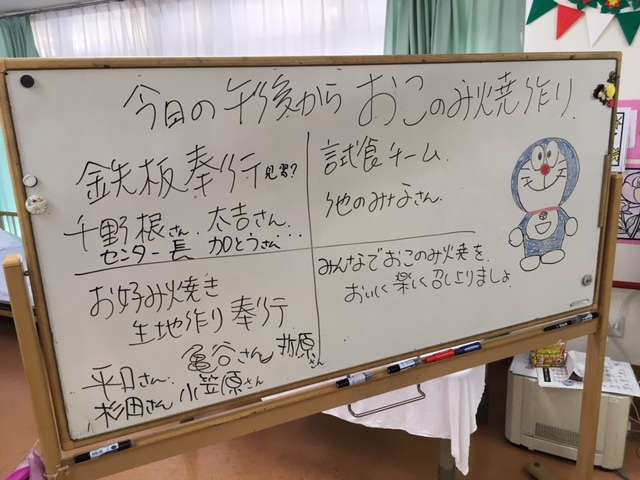 今日の午後から おこのみ焼作り.
鉄板奉行見習?
千野根さん 太吉さん.
センター長 加とうさん..
試食チーム.
他のみなさん.
お好み焼き
生地作り奉行
亀谷さん 折原さん
平口さん.
杉田さん 小笠原さん
みんなでおこのみ焼を.
おいしく楽しく召し上りましょ.